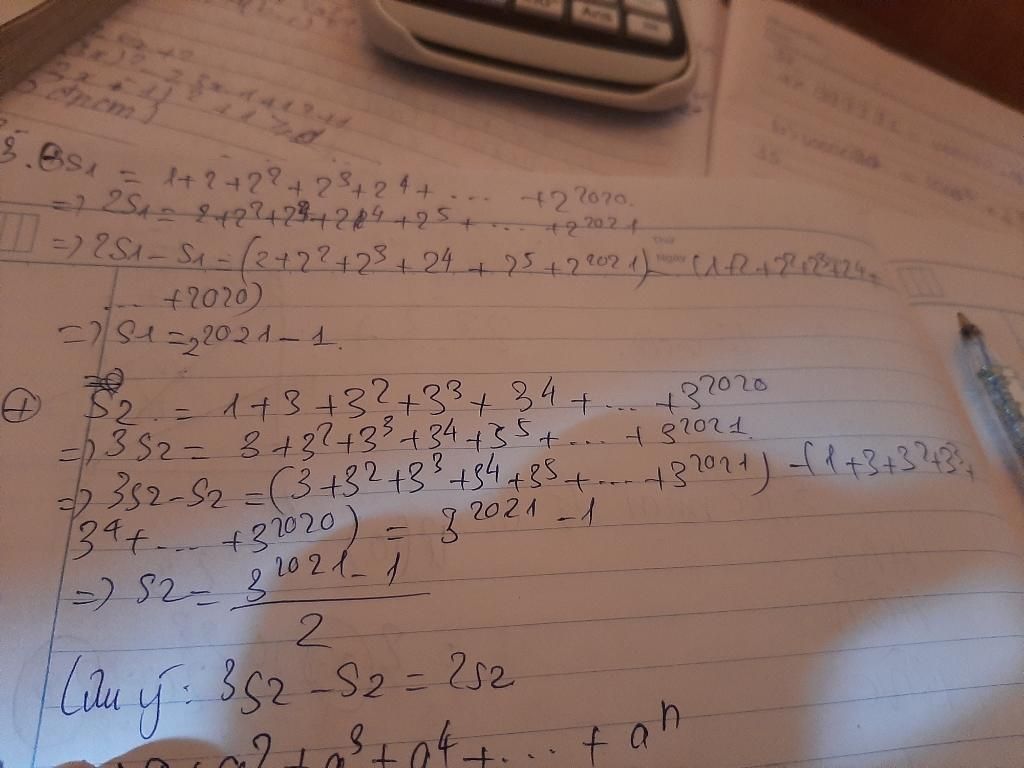 3. S1 = 1+2+2²+2³+2⁴+ ... +2²⁰²⁰.
=> 2S1 = 2+2²+2³+2⁴+2⁵+ ... +2²⁰²¹
=> 2S1-S1 = (2+2²+2³+2⁴+2⁵+2²⁰²¹) - (1+2+2²+2³+2⁴+
... +2020)
=> S1 = 2²⁰²¹-1.
⊕ S2 = 1+3+3²+3³+3⁴+ ... +3²⁰²⁰
=> 3S2 = 3+3²+3³+3⁴+3⁵+ ... +3²⁰²¹
=> 3S2-S2 = (3+3²+3³+3⁴+3⁵+ ... +3²⁰²¹) - (1+3+3²+3³+
3⁴+ ... +3²⁰²⁰) = 3²⁰²¹-1
=> S2 = 3²⁰²¹-1
2
Lưu ý: 3S2-S2 = 2S2
a²+a³+a⁴+ ... +aⁿ